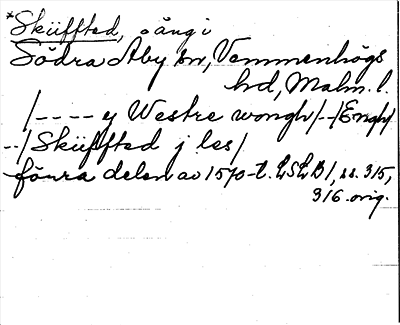 *Sküffted, sång i
Södra Åby sn, Vemmenhögs
hd, Malm. l.
/---- y Westre wongh/--/Engh/
--/Sküffted j les/
förra delen av 1570-t. LSLB1, ss. 315,
316. orig.